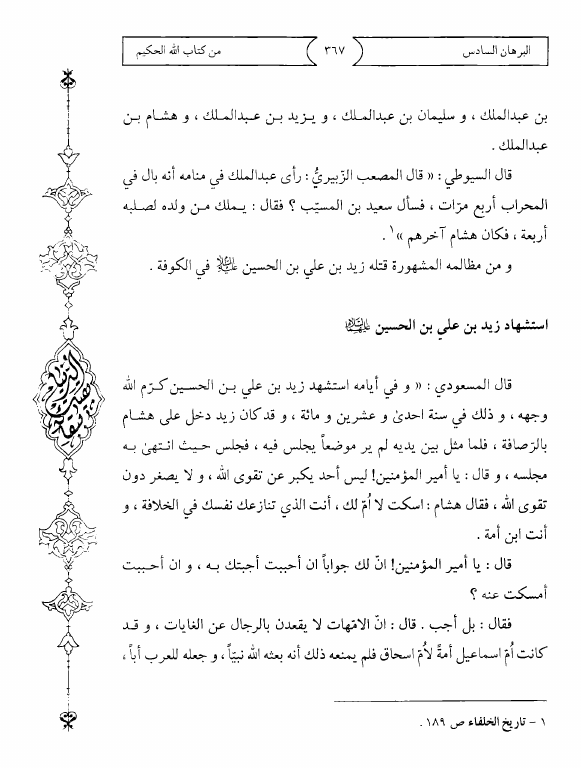 البرهان السادس ٣٦٧ من كتاب الله الحكيم
بن عبدالملك ، و سليمان بن عبدالملك ، و يزيد بن عبدالملك ، و هشام بن
عبدالملك .
قال السيوطي : « قال المصعب الزّبيريُّ : رأى عبدالملك في منامه أنه بال في
المحراب أربع مرّات ، فسأل سعيد بن المسيّب ؟ فقال : يملك من ولده لصلبه
أربعة ، فكان هشام آخرهم »١ .
و من مظالمه المشهورة قتله زيد بن علي بن الحسين في الكوفة .
استشهاد زيد بن علي بن الحسين
قال المسعودي : « و في أيامه استشهد زيد بن علي بن الحسين كرّم الله
وجهه ، و ذلك في سنة احدىٰ و عشرين و مائة ، و قد كان زيد دخل على هشام
بالرّصافة ، فلما مثل بين يديه لم ير موضعاً يجلس فيه ، فجلس حيث انتهىٰ به
مجلسه ، و قال : يا أمير المؤمنين! ليس أحد يكبر عن تقوى الله ، و لا يصغر دون
تقوى الله ، فقال هشام : اسكت لا اُمّ لك ، أنت الذي تنازعك نفسك في الخلافة ، و
أنت ابن أمة .
قال : يا أمير المؤمنين! انّ لك جواباً ان أحببت أجبتك به ، و ان أحببت
أمسكت عنه ؟
فقال : بل أجب . قال : انّ الامّهات لا يقعدن بالرجال عن الغايات ، و قد
كانت اُمّ اسماعيل أمةً لاُمّ اسحاق فلم يمنعه ذلك أنه بعثه الله نبيّاً ، و جعله للعرب أباً ،
١ - تاريخ الخلفاء ص ١٨٩ .